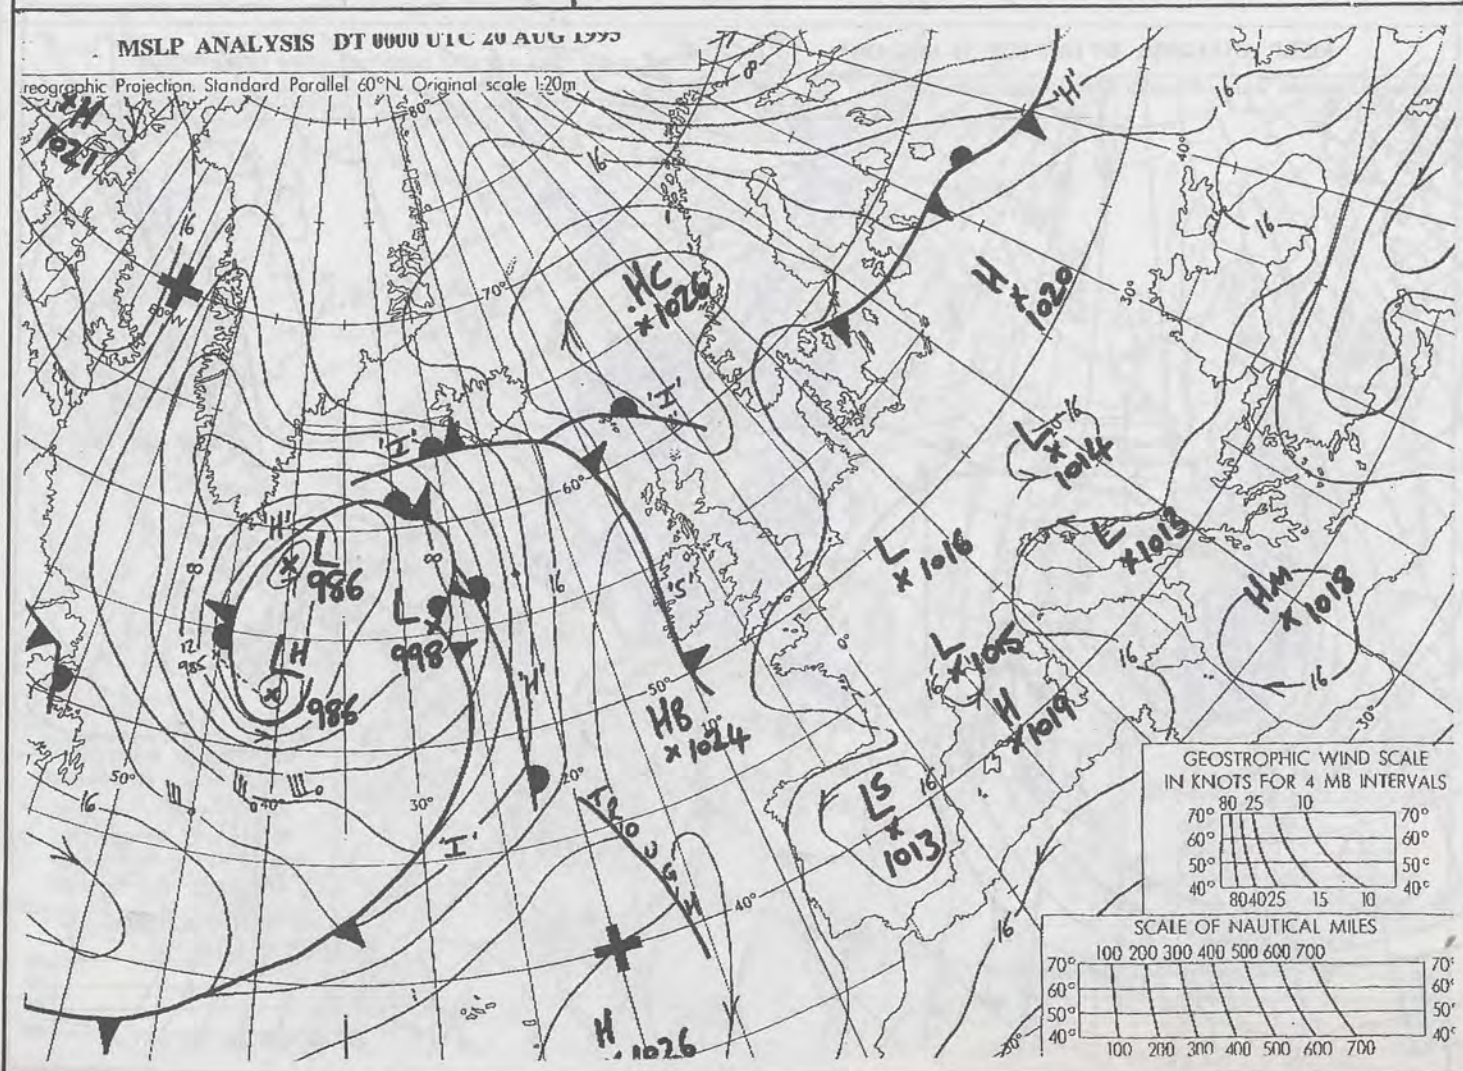 MSLP ANALYSIS DT 0000 UTC 20 AUG 1995
reographic Projection. Standard Parallel 60°N. Original scale 1:20m
H
1021
16
80°
16
8
'H'
16
40°
16
HC
1026
70°
H
1020
30°
60°W
'I'
'I'
L
16
1014
60°
'H'
L
986
8
8
16
L
998
'S'
L
1016
L
1013
HM
1018
12
985
L H
986
'H'
50°
HB
1024
10°
0°
L
1015
16
H
1019
16
16
30°
50°
16
40°
30°
20°
'I'
TROUGH
LS
1013
16
40°
16
H
1026
GEOSTROPHIC WIND SCALE
IN KNOTS FOR 4 MB INTERVALS
80 25 10
70° 70°
60° 60°
50° 50°
40° 40°
80 40 25 15 10
SCALE OF NAUTICAL MILES
100 200 300 400 500 600 700
70° 70°
60° 60°
50° 50°
40° 40°
100 200 300 400 500 600 700